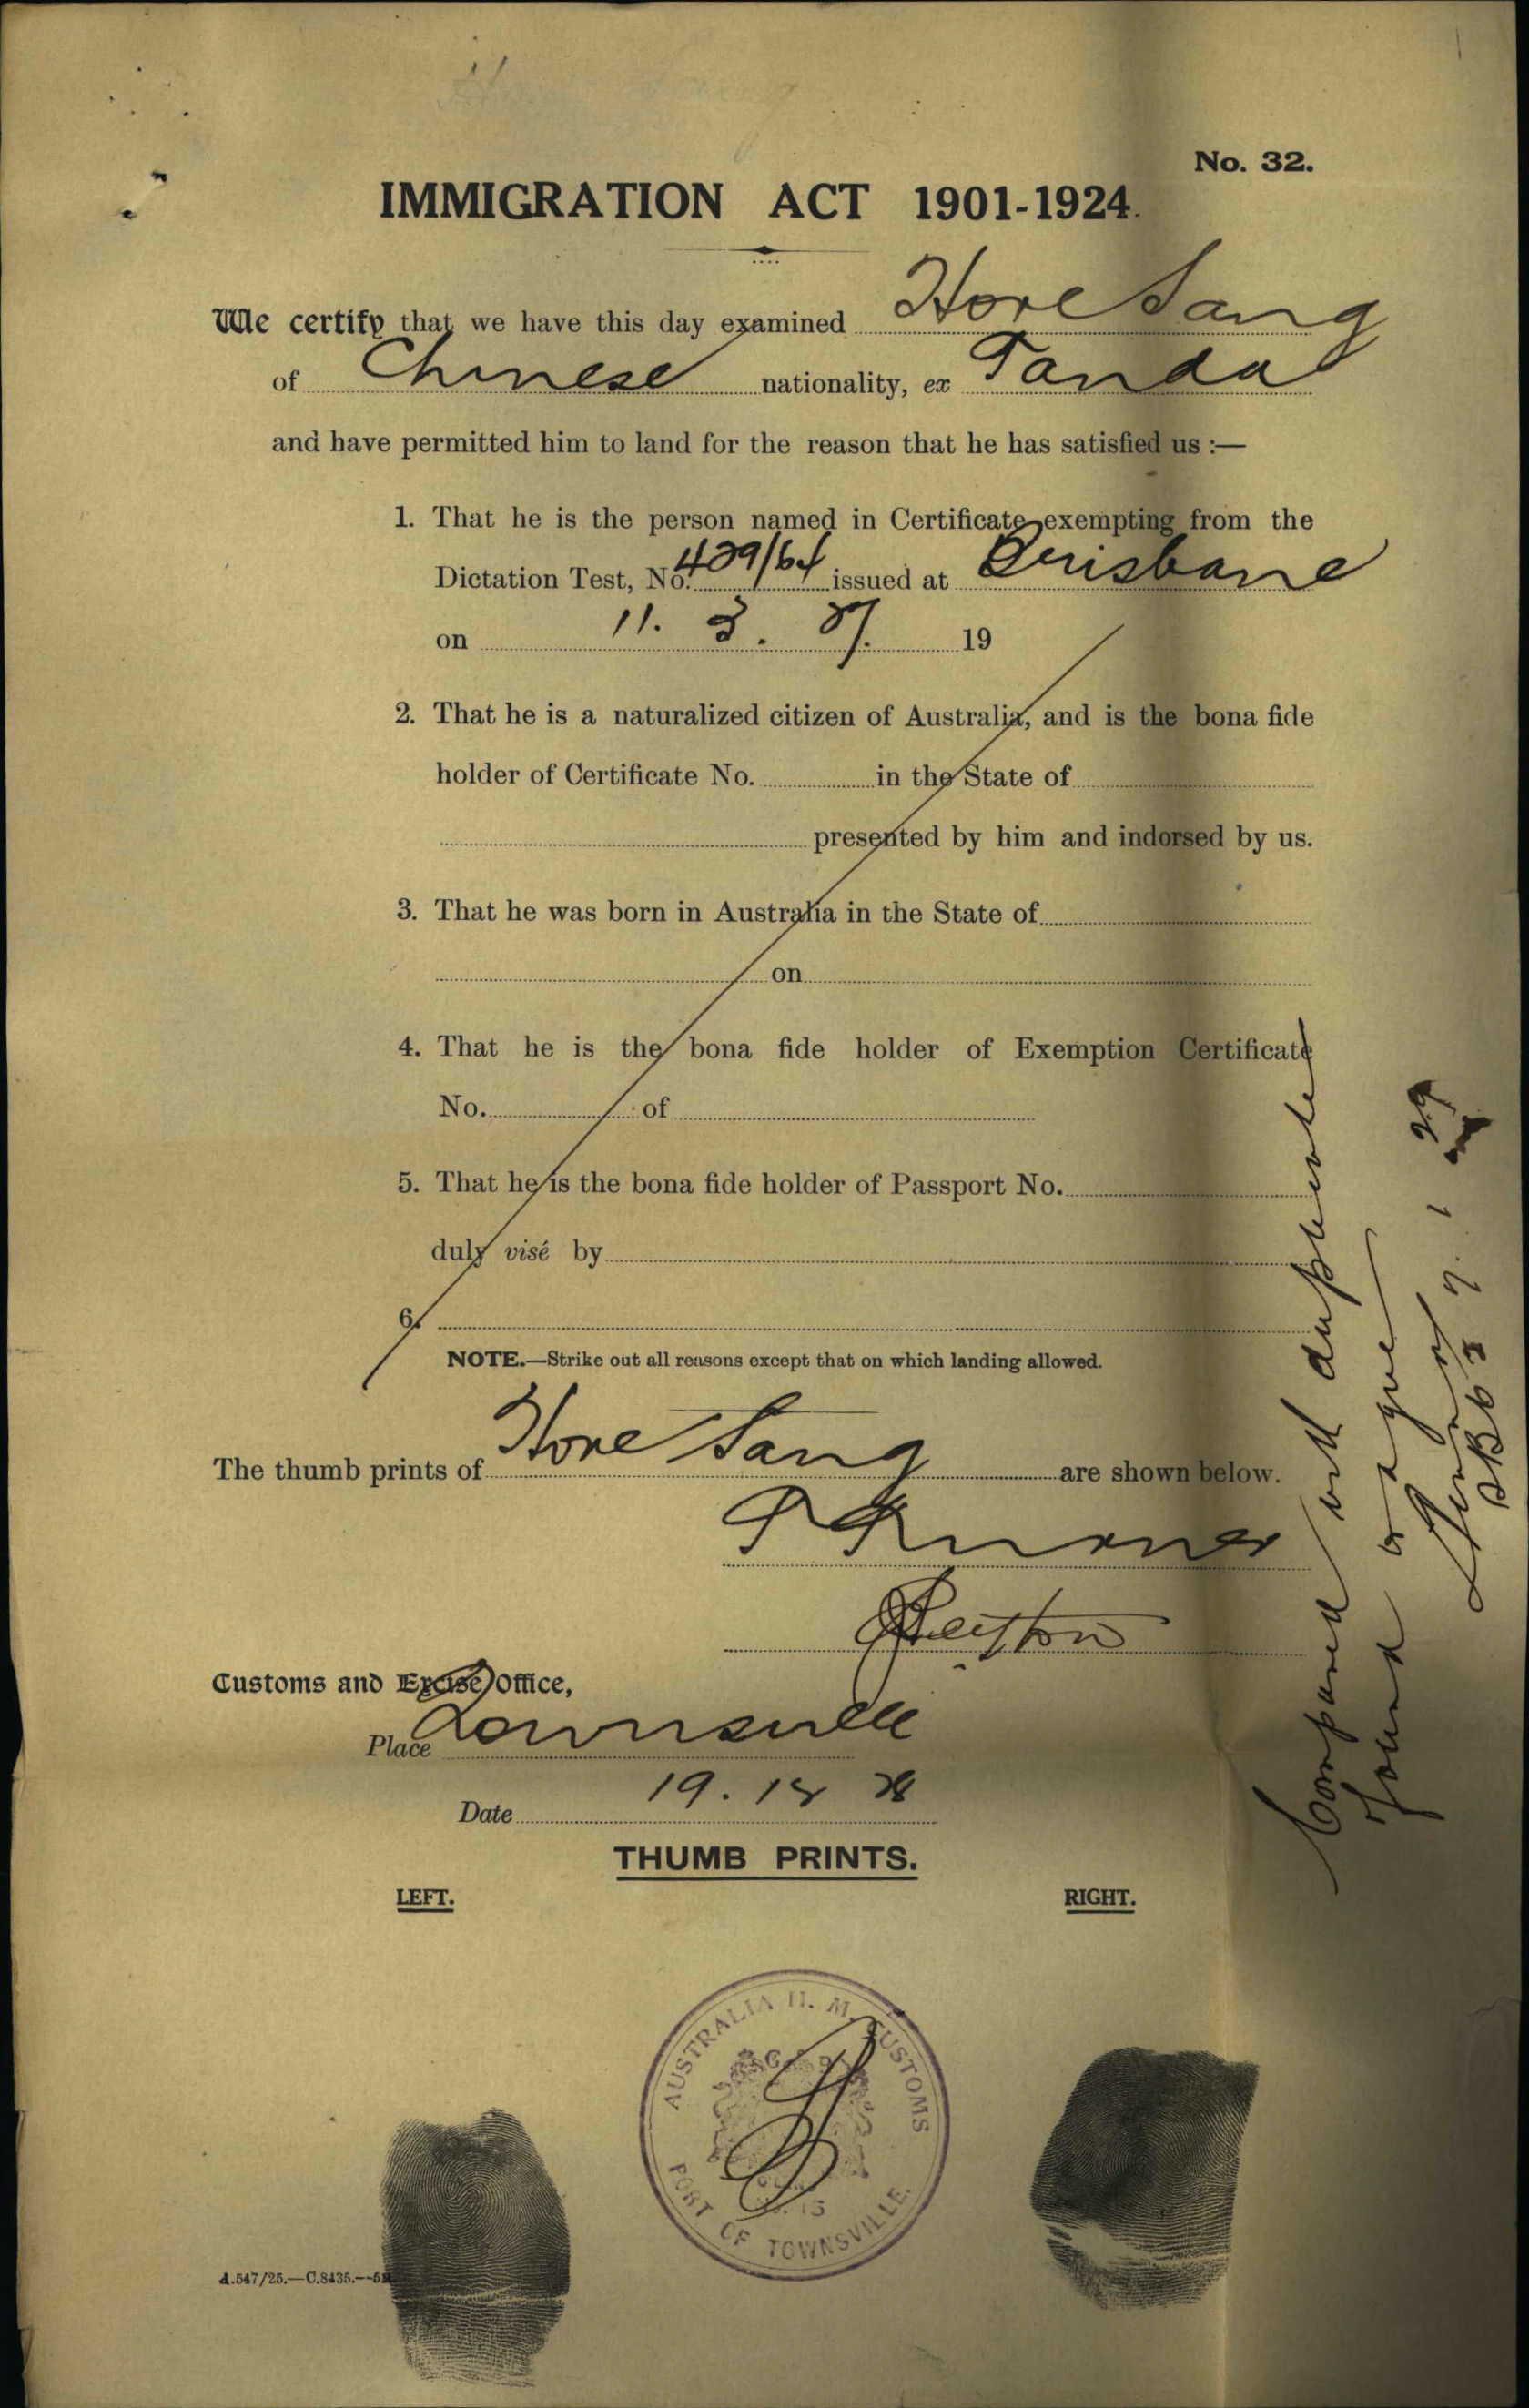 No. 32.
IMMIGRATION ACT 1901-1924.
We certify that we have this day examined Hore Sang
of Chinese nationality, ex Tanda
and have permitted him to land for the reason that he has satisfied us :—
1. That he is the person named in Certificate exempting from the
Dictation Test, No. 429/64 issued at Brisbane
on 11. 3. 27. 19
2. That he is a naturalized citizen of Australia, and is the bona fide
holder of Certificate No. in the State of
presented by him and indorsed by us.
3. That he was born in Australia in the State of
on
4. That he is the bona fide holder of Exemption Certificate
No. of
5. That he is the bona fide holder of Passport No.
duly visé by
6.
NOTE.—Strike out all reasons except that on which landing allowed.
The thumb prints of Hore Sang are shown below.
Customs and Excise Office,
Place Townsville
Date 19. 12 28
THUMB PRINTS.
LEFT. RIGHT.
AUSTRALIA H. M. CUSTOMS
PORT OF TOWNSVILLE.
A.547/25.—C.8435.—
Compared with duplicate
found to agree
7. 1 29